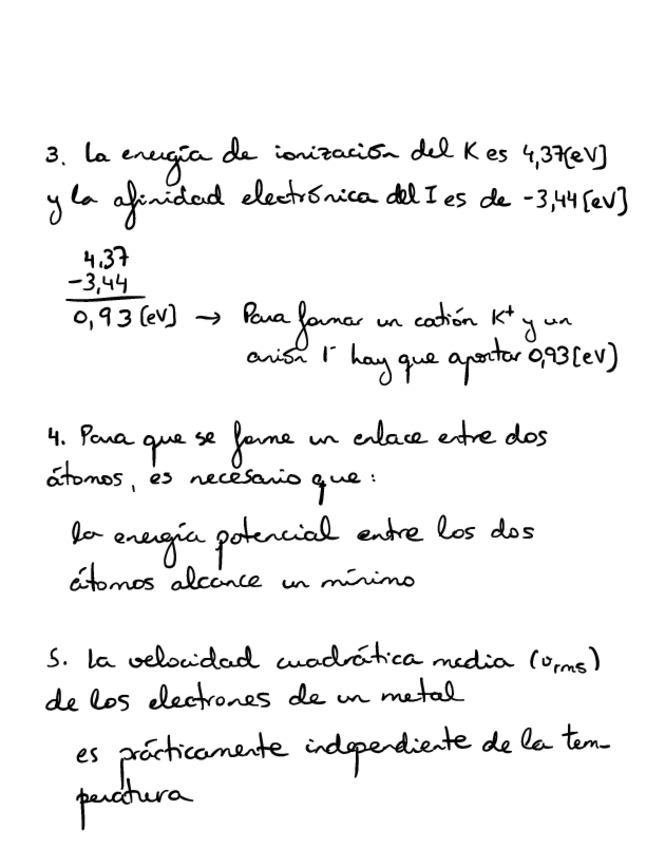 3. La energía de ionización del K es 4,37[eV]
y la afinidad electrónica del I es de -3,44[eV]
4.37
-3,44
0,93 [eV] → Para formar un catión K⁺ y un
anión I⁻ hay que aportar 0,93[eV]
4. Para que se forme un enlace entre dos
átomos, es necesario que:
la energía potencial entre los dos
átomos alcance un mínimo
5. La velocidad cuadrática media (v_rms)
de los electrones de un metal
es prácticamente independiente de la tem-
peratura